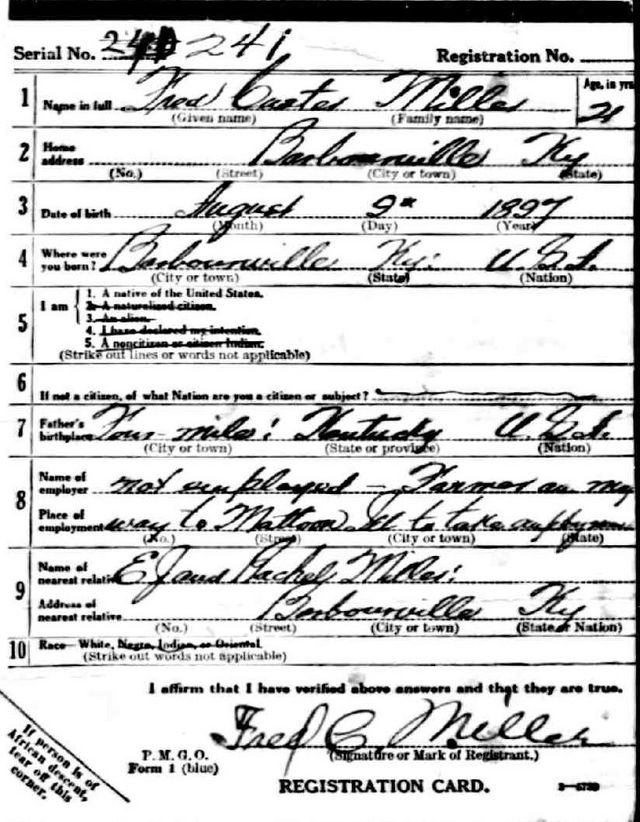 Serial No. 241 Registration No.
1 Name in full Fred Custer Miller Age, in yrs
(Given name) (Family name) 21
2 Home address Barbourville Ky
(No.) (Street) (City or town) (State)
3 Date of birth August 9th 1897
(Month) (Day) (Year)
4 Where were you born? Barbourville Ky. U.S.A.
(City or town) (State) (Nation)
5 I am
1. A native of the United States.
2. A naturalized citizen.
3. An alien.
4. I have declared my intention.
5. A noncitizen or citizen Indian.
(Strike out lines or words not applicable)
6 If not a citizen, of what Nation are you a citizen or subject?
7 Father's birthplace Four mile: Kentucky U.S.A.
(City or town) (State or province) (Nation)
8 Name of employer not employed - Farmer on my
Place of employment way to Mattoon Ill to take
(No.) (Street) (City or town) (State)
9 Name of nearest relative E J and Rachel Miller:
Address of nearest relative Barbourville Ky
(No.) (Street) (City or town) (State or Nation)
10 Race—White, Negro, Indian, or Oriental.
(Strike out words not applicable)
I affirm that I have verified above answers and that they are true.
Fred C. Miller
P. M. G. O. (Signature or Mark of Registrant.)
Form 1 (blue)
REGISTRATION CARD.
If person is of
African descent,
tear off this
corner.